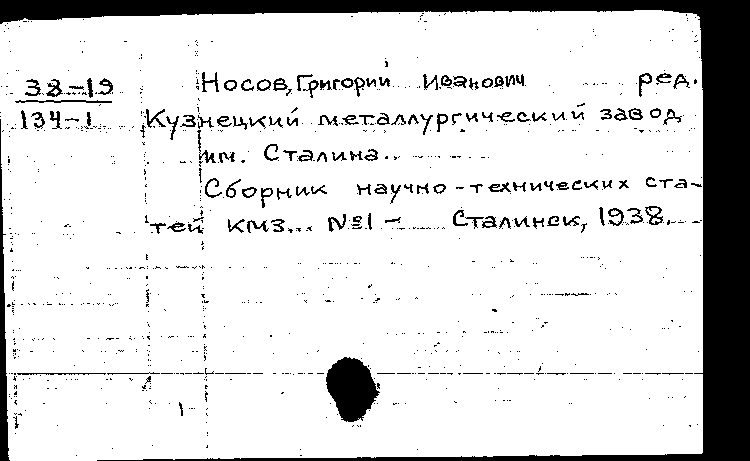 38-19 Носов, Григорий Иванович ред.
134-1 Кузнецкий металлургический завод
им. Сталина..
Сборник научно-технических ста-
тей КМЗ... №1 - Сталинск, 1938.